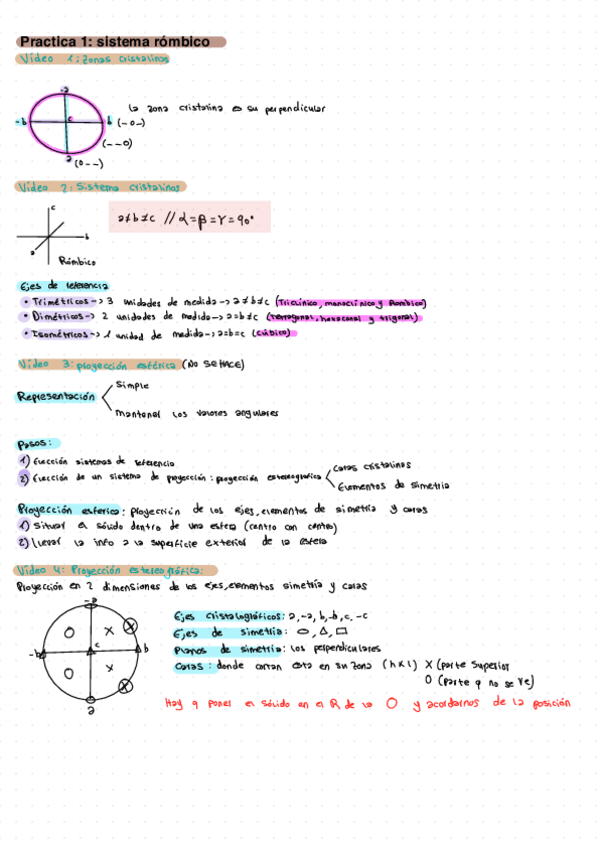 Practica 1: sistema rómbico
Vídeo 1: Zonas cristalinas
-a
-b c b (-0-)
la zona cristalina es su perpendicular
(--0)
a (0--)
Vídeo 2: Sistema cristalinos
c
a≠b≠c // α=β=γ=90°
b
a
Rómbico
Ejes de referencia
• Trimétricos -> 3 unidades de medida -> a≠b≠c (Triclínico, monoclínico y Rombico)
• Dimétricos -> 2 unidades de medida -> a=b≠c (tetragonal, hexagonal y trigonal)
• Isométricos -> 1 unidad de medida -> a=b=c (cúbico)
Vídeo 3: proyección esférica (NO SE HACE)
Simple
Representación
mantener los valores angulares
Pasos:
1) Elección sistemas de referencia
2) Elección de un sistema de proyección: proyección estereográfica
Caras cristalinas
Elementos de simetria
Proyección esferica: proyección de los ejes, elementos de simetría y caras
1) Situar el sólido dentro de una esfera (centro con centro)
2) Llevar la info a la superficie exterior de la esfera
Vídeo 4: Proyección estereográfica:
Proyección en 2 dimensiones de los ejes, elementos simetría y caras
-a
O X X
-b c b
O X X
a
Ejes cristalográficos: a, -a, b, -b, c, -c
Ejes de simetría: ⬭, △, □
Planos de simetría: los perpendiculares
Caras: donde cortan esta en su zona (h k l) X (parte superior
O (parte q no se ve)
Hay q poner el sólido en el R de la O y acordarnos de la posición